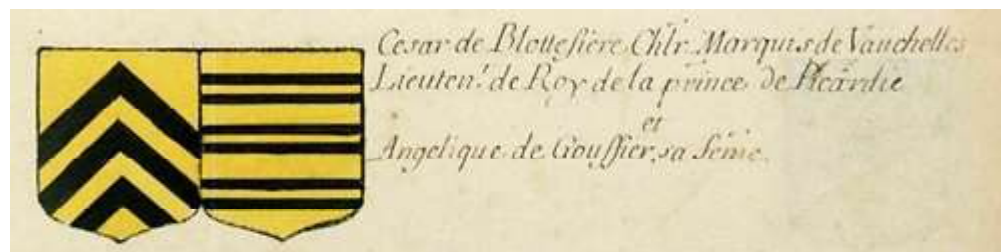 Cesar de Blottefiere Chlr. Marquis de Vauchelles
Lieuten.t de Roy de la prince de Picardie
et
Angelique de Gouffier, sa feme.